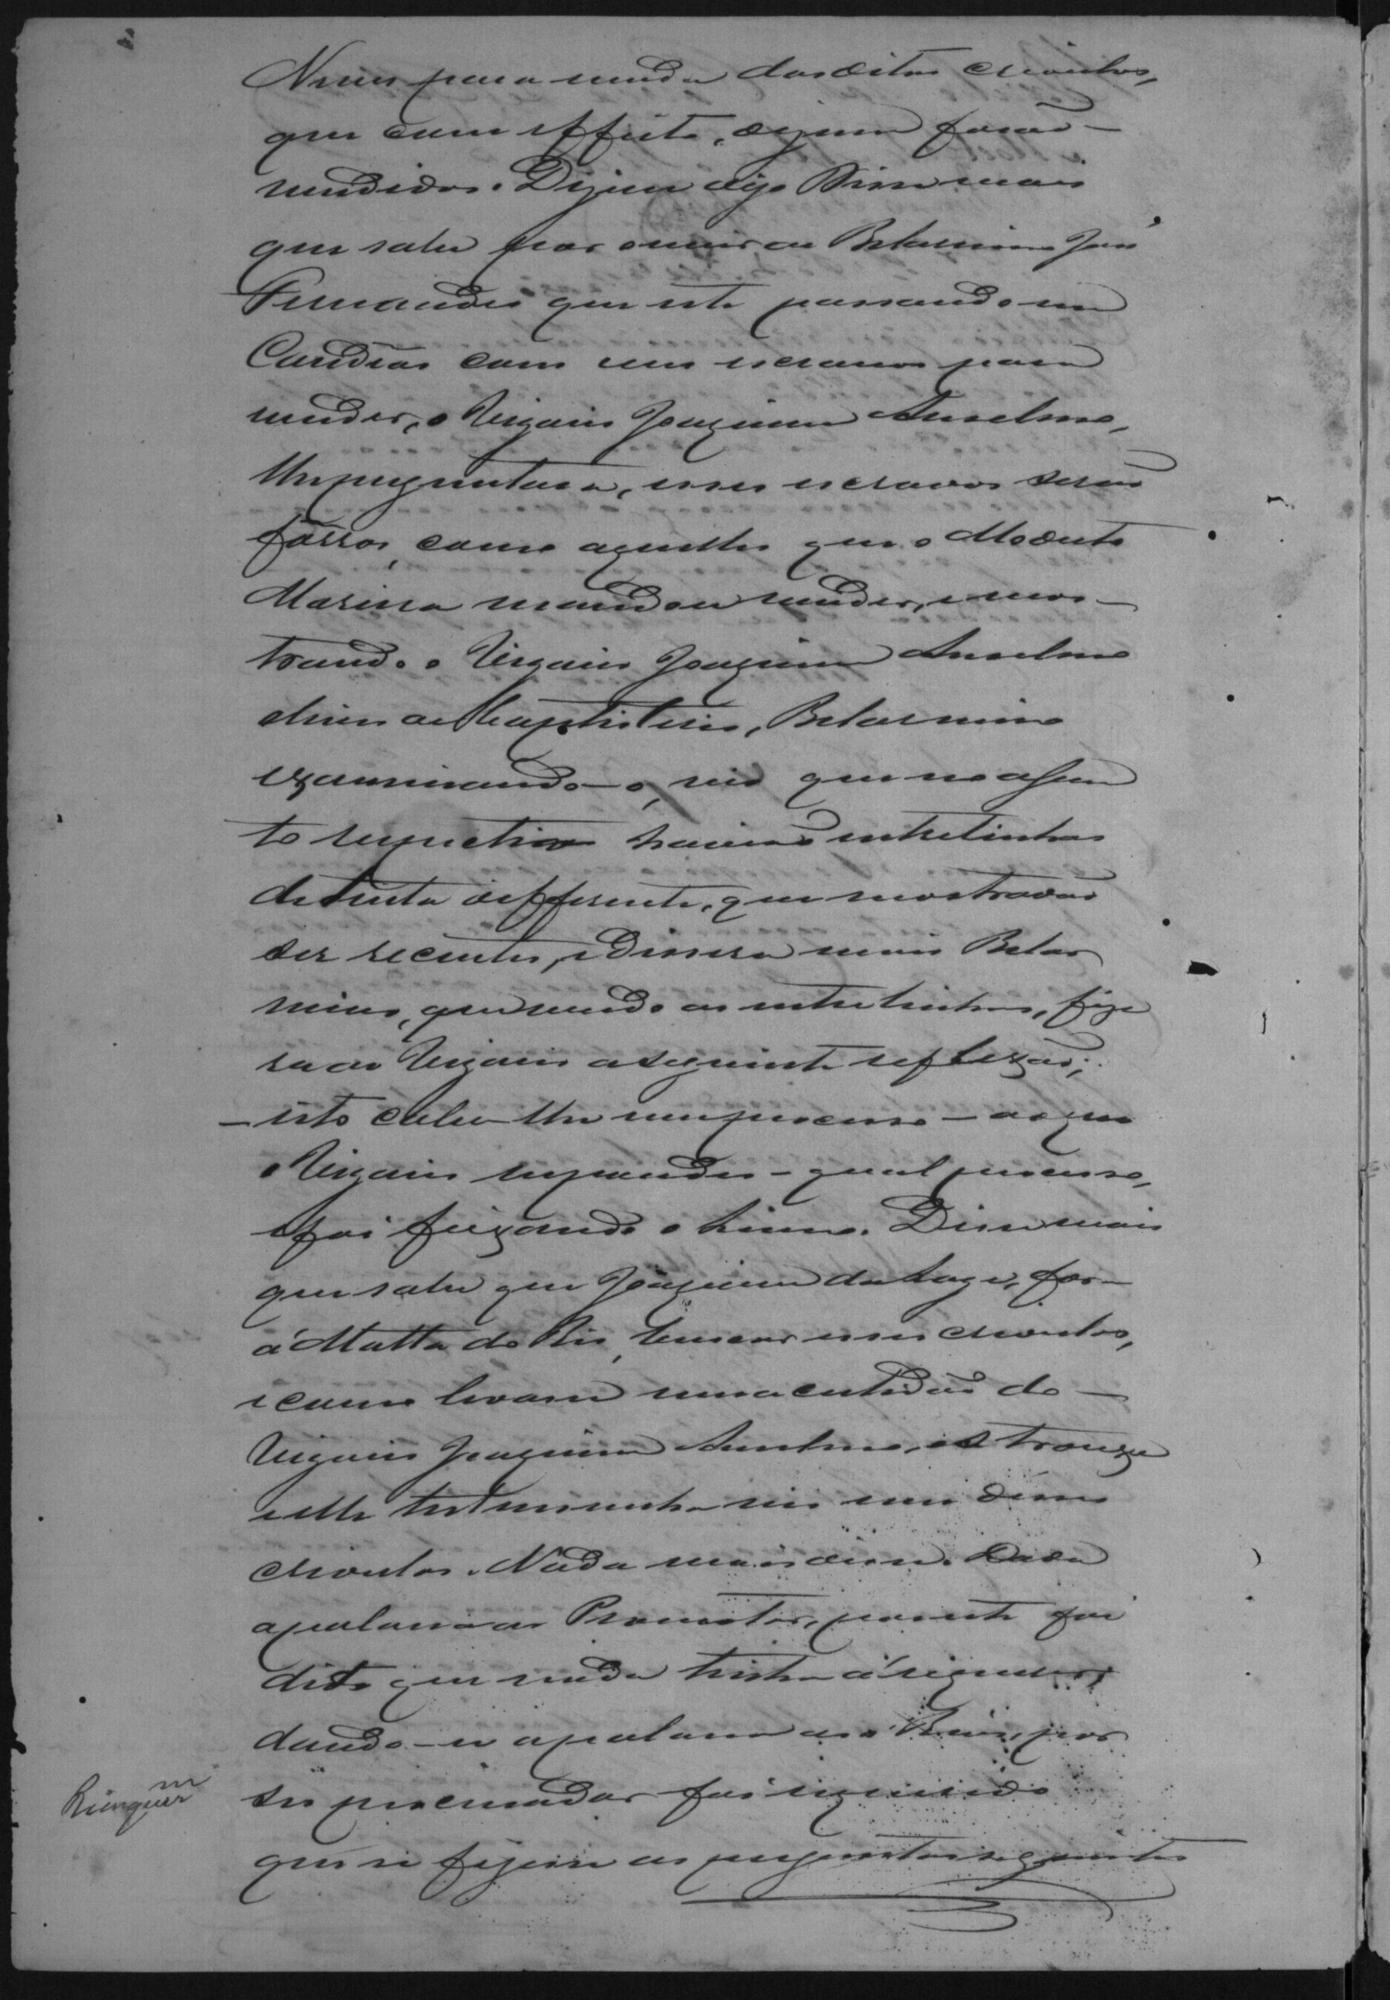 Neves para venda dos ditos crioulos,
que com effeito, dizem forão
vendidos. Dizem digo Disse mais
que sabe por ouvir a Belarmino José
Fernandes que este passando em
Caridias com uns escravos para
vender, o Vigario Joaquim Anselmo,
lhe perguntara, esses escravos serão
fôrros, como aquelles que o Modesto
Marinra mandou vender, e mos-
trando o Vigario Joaquim Anselmo
o livro de baptisterio, Belarmino
examinando-o, vio que no assen
to respectivo havião entrelinhas
de tinta differente, que mostravão
ser recentes, e dissera mais Belar
mino, que vendo as entrelinhas, fize
ra ao Vigario a seguinte reflexão;
— isto cabe-lhe um processo — ao que
o Vigario respondeo - qual processo,
e foi fexando o livro. Disse mais
que sabe que Joaquim da Lage, foi
á Matta do Rio, buscar esses crioulos,
e como levara uma certidão do
Vigario Joaquim Anselmo, os trouxe
e elle testemunha vio um desses
crioulos. Nada mais disse. Dada
a palavra ao Promotor, por este foi
dito que nada tinha á requerer;
dando-se a palavra ao Reu, por
seu procurador foi requerido
que se fizesse as perguntas seguintes